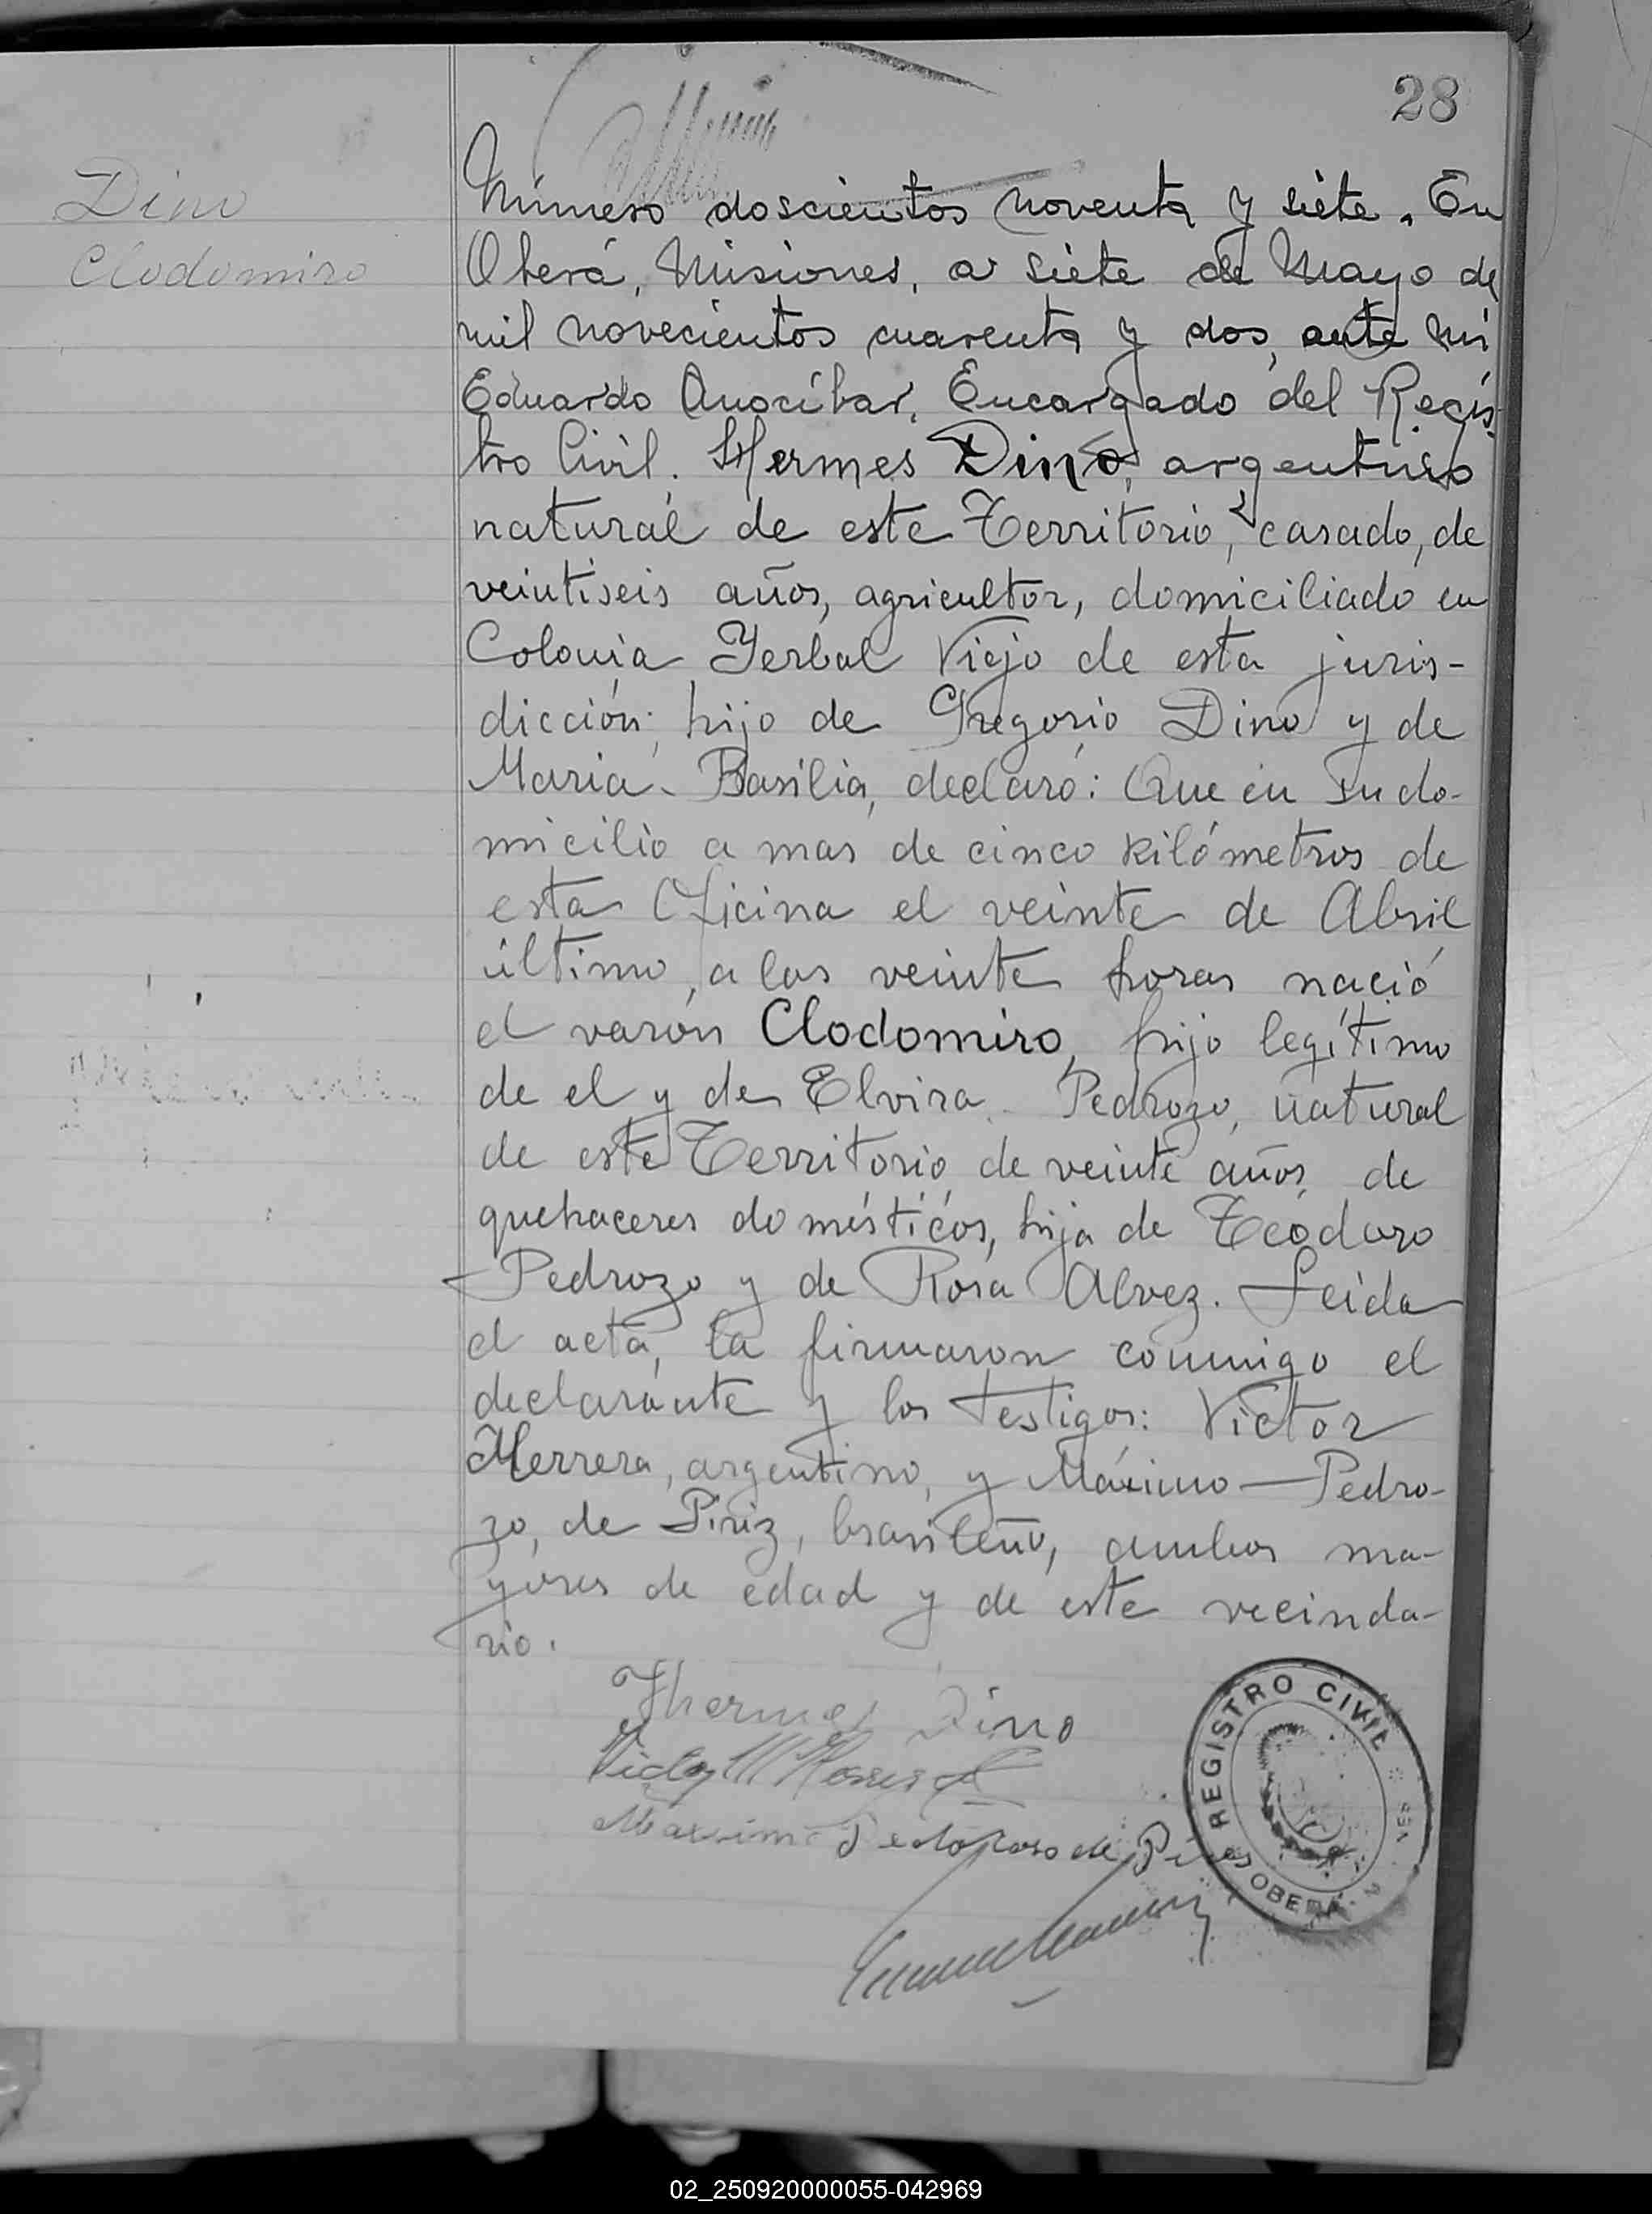 28
Dino
Clodomiro
Número doscientos noventa y siete. En
Oberá, Misiones, a siete de Mayo de
mil novecientos cuarenta y dos, ante mi
Eduardo Anocíbar, Encargado del Regis-
tro Civil. Hermes Dino, argentino
natural de este Territorio, casado, de
veintiseis años, agricultor, domiciliado en
Colonia Yerbal Viejo de esta juris-
dicción; hijo de Gregorio Dino y de
Maria Basilia, declaró: Que en su do-
micilio a mas de cinco kilómetros de
esta Oficina el veinte de Abril
último, a las veinte horas nació
el varón Clodomiro, hijo legítimo
de el y de Elvira Pedrozo, natural
de este Territorio de veinte años, de
quehaceres domésticos, hija de Teodoro
Pedrozo y de Rosa Alvez. Leida
el acta, la firmaron conmigo el
declarante y los testigos: Victor
Herrera, argentino, y Máximo Pedro-
zo, de Piriz, brasileño, ambos ma-
yores de edad y de este vecinda-
rio.
Thermes Dino
Victor M Herrera
Maximo Pedroso de
REGISTRO CIVIL
OBERÁ
02_250920000055-042969